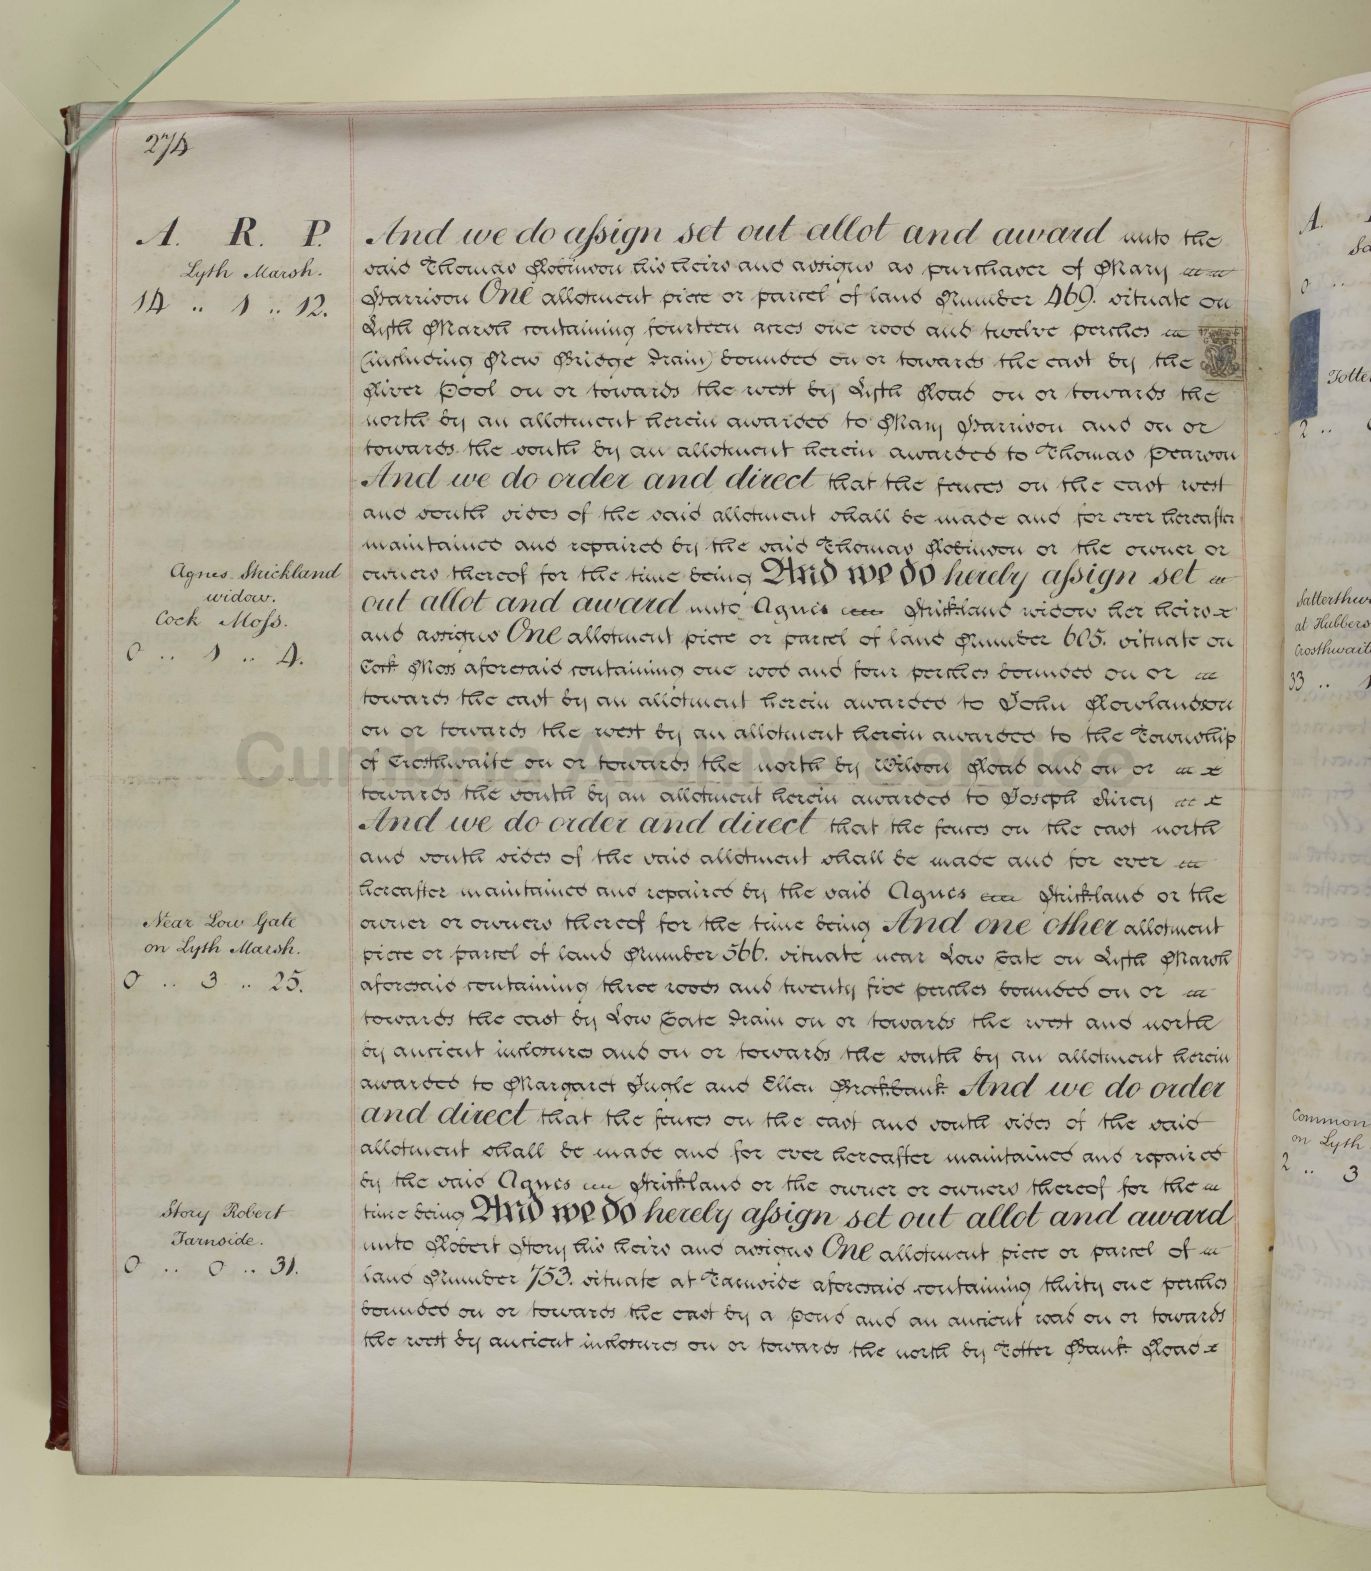 274
A. R. P.
Lyth Marsh.
14 .. 1 .. 12.
And we do assign set out allot and award unto the
said Thomas Robinson his heirs and assigns as purchaser of Mary
Harrison One allotment piece or parcel of land Number 469. situate on
Lyth Marsh containing fourteen acres one rood and twelve perches
(including New Bridge Drain) bounded on or towards the east by the
River Pool on or towards the west by Lyth Road on or towards the
north by an allotment herein awarded to Mary Harrison and on or
towards the south by an allotment herein awarded to Thomas Pearson
And we do order and direct that the fences on the east west
and south sides of the said allotment shall be made and for ever hereafter
maintained and repaired by the said Thomas Robinson or the owner or
owners thereof for the time being And we do hereby assign set
Agnes Strickland
widow.
Cock Moss.
0 .. 1 .. 4.
out allot and award unto Agnes Strickland widow her heirs
and assigns One allotment piece or parcel of land Number 605. situate on
Cock Moss aforesaid containing one rood and four perches bounded on or
towards the east by an allotment herein awarded to John Rowlandson
on or towards the west by an allotment herein awarded to the Township
of Crosthwaite on or towards the north by Wilson Road and on or
towards the south by an allotment herein awarded to Joseph
And we do order and direct that the fences on the east north
and south sides of the said allotment shall be made and for ever
hereafter maintained and repaired by the said Agnes Strickland or the
owner or owners thereof for the time being And one other allotment
Near Low Gate
on Lyth Marsh.
0 .. 3 .. 25.
piece or parcel of land Number 566. situate near Low Gate on Lyth Marsh
aforesaid containing three roods and twenty five perches bounded on or
towards the east by Low Gate Drain on or towards the west and north
by ancient inclosures and on or towards the south by an allotment herein
awarded to Margaret Ingle and Ellen Brockbank And we do order
and direct that the fences on the east and south sides of the said
allotment shall be made and for ever hereafter maintained and repaired
by the said Agnes Strickland or the owner or owners thereof for the
time being And we do hereby assign set out allot and award
Story Robert
Tarnside.
0 .. 0 .. 31.
unto Robert Story his heirs and assigns One allotment piece or parcel of
land Number 753. situate at Tarnside aforesaid containing thirty one perches
bounded on or towards the east by a pond and an ancient road on or towards
the west by ancient inclosures on or towards the north by Totter Bank Road
Cumbria Archive Service
A.
0 ..
2 ..
Satterthwa
at Hubbers
Crosthwaite
33 ..
Common
on Lyth
2 .. 3